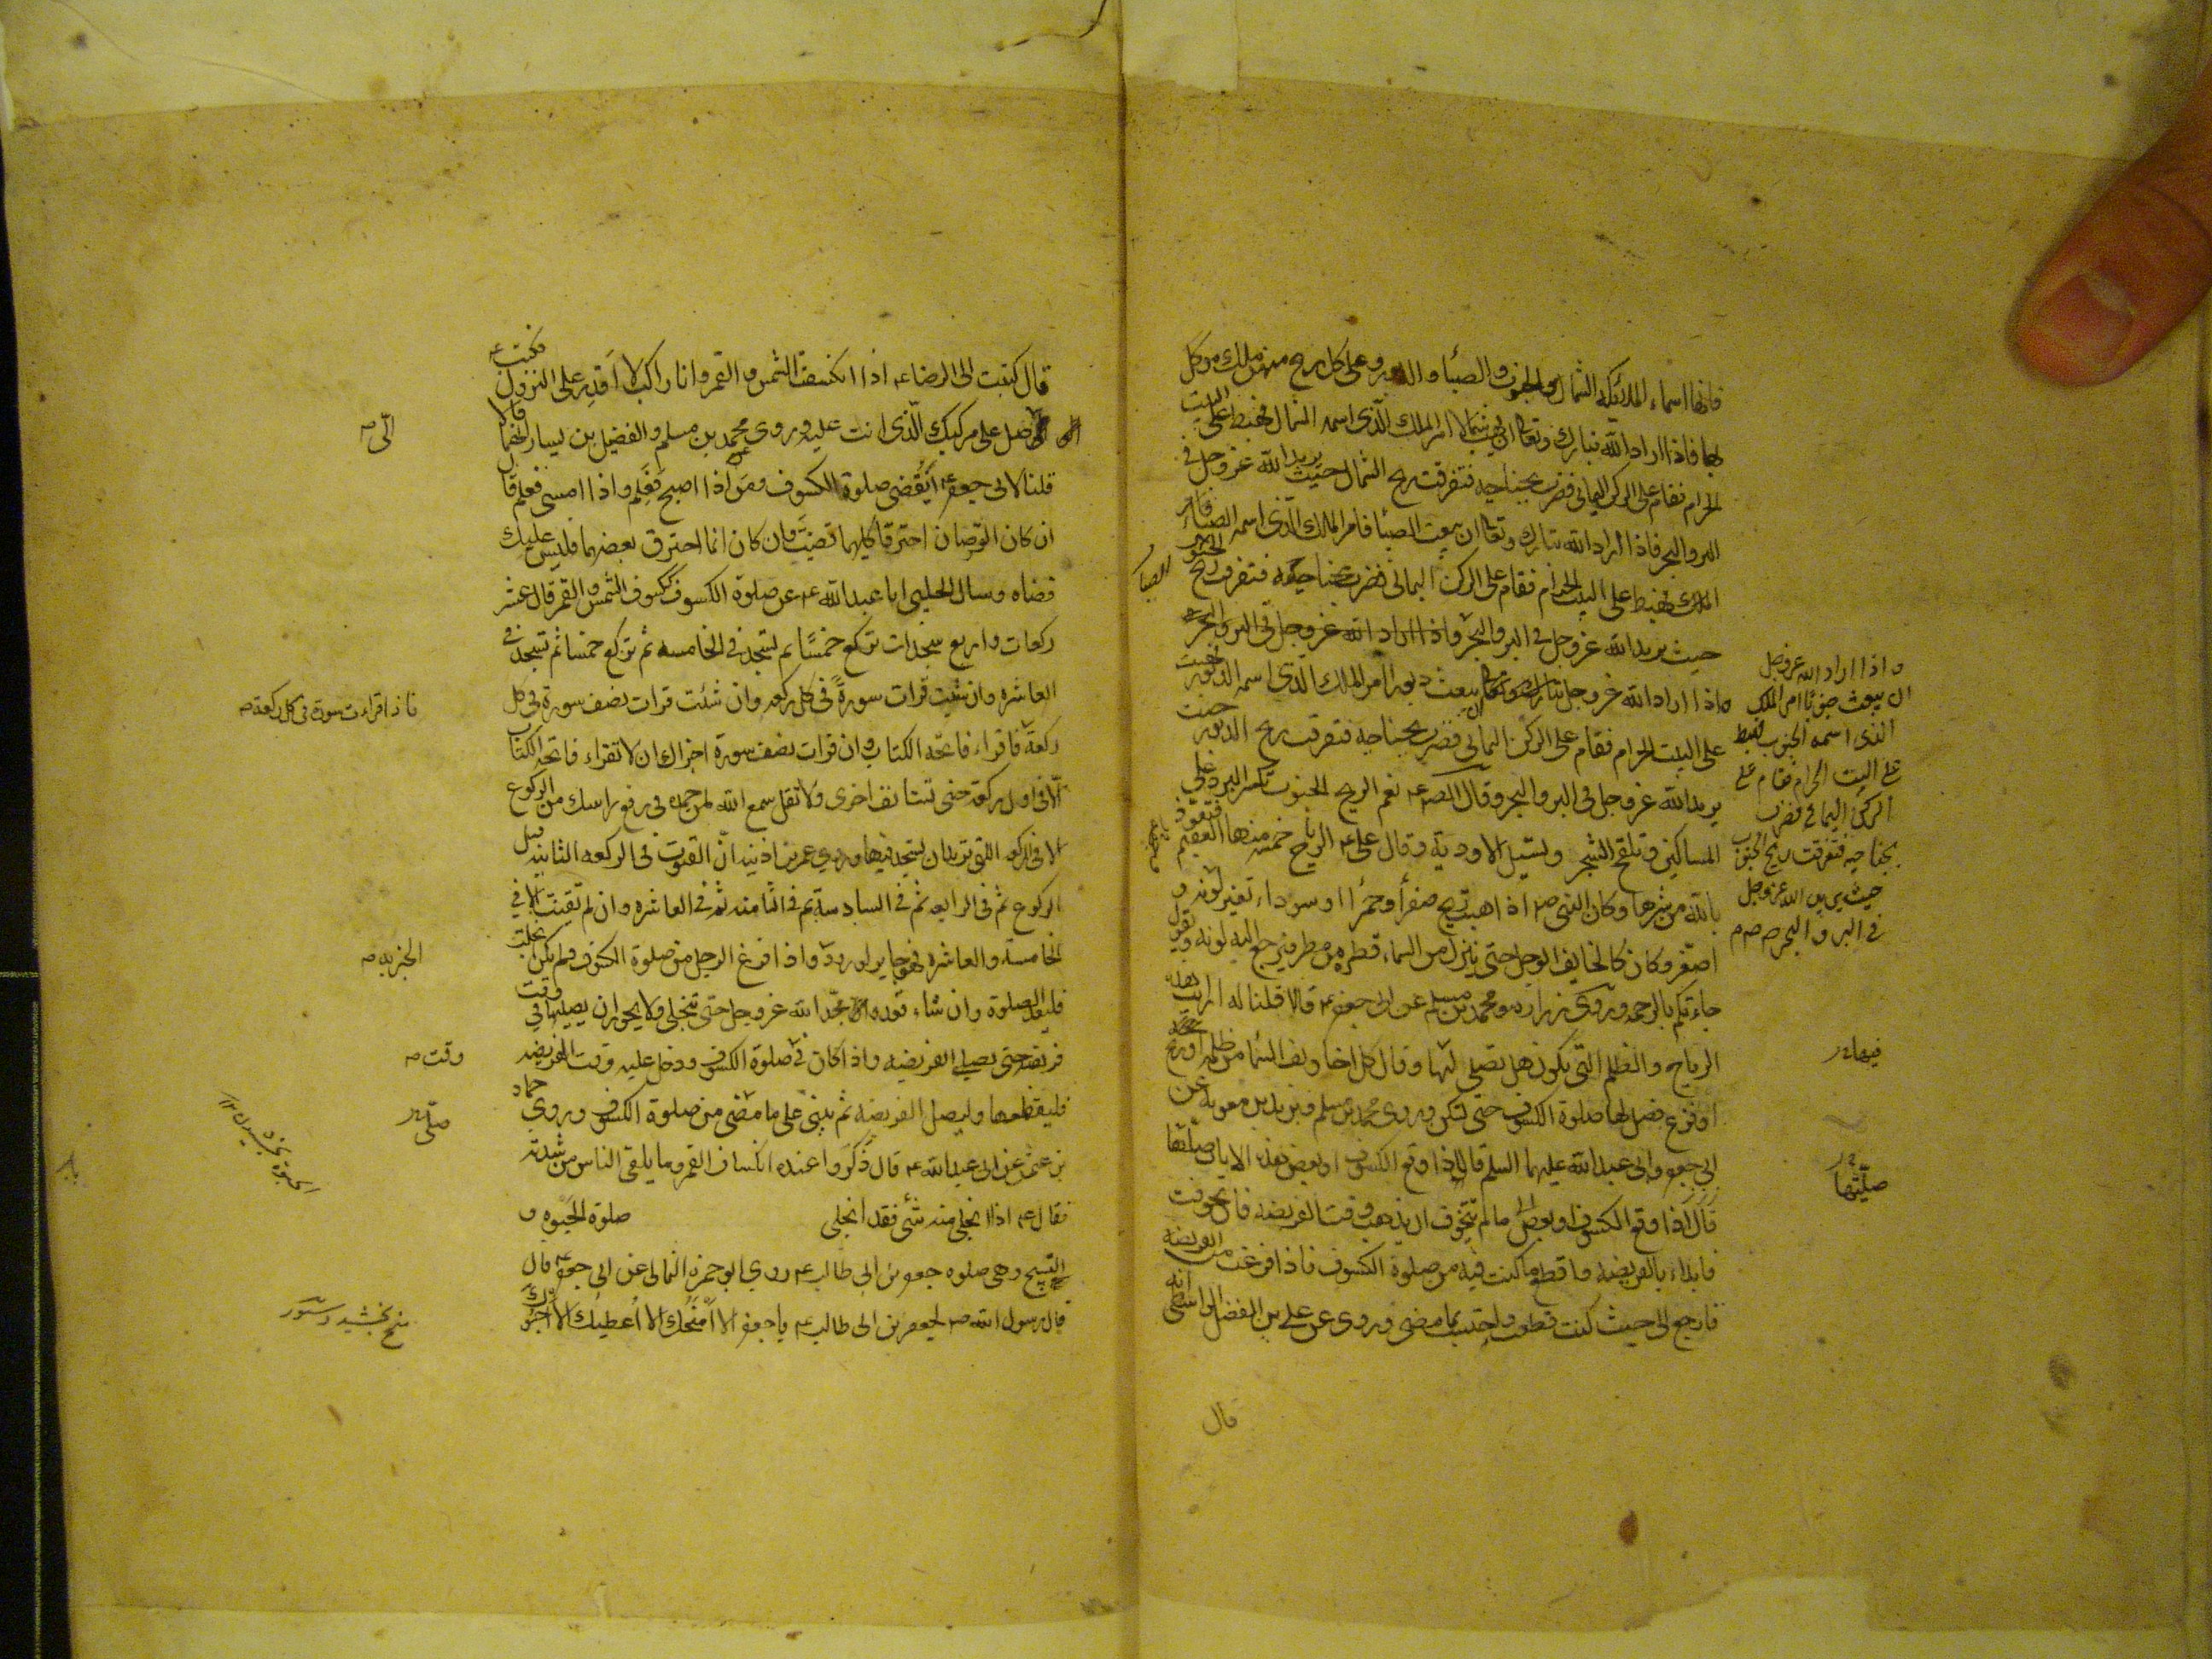 فانها اسماء الملائكة الشمال والجنوب والصبا والدبور وعلى كل ريح منهن ملك موكل
بها فاذا اراد الله تبارك وتعالى ان يهب شمالا امر الملك الذى اسمه الشمال فهبط على البيت
الحرام فقام على الركن اليمانى فضرب بجناحيه فتفرقت ريح الشمال حيث يريد الله عز وجل فى
البر والبحر فاذا اراد الله تبارك وتعالى ان يبعث الصبا فامر الملك الذى اسمه الصبا
الملك فهبط على البيت الحرام فقام على الركن اليمانى فضرب بجناحيه فتفرقت ريح
حيث يريد الله عز وجل فى البر والبحر واذا اراد الله عز وجل فى البر والبحر
واذا اراد الله عز وجل ان يبعث دبورا امر الملك الذى اسمه الدبور فهبط
على البيت الحرام فقام على الركن اليمانى فضرب بجناحيه فتفرقت ريح الدبور حيث
يريد الله عز وجل فى البر والبحر وقال الصادق نعم الريح الجنوب تكسر البرد على
المساكين وتلقح الشجر وتسيل الاودية وقال على ع الرياح خمسة منها العقيم فتعوذ
بالله من شرها وكان النبى ص اذا هبت ريح صفرا وحمرا او سوداء تغير لونه و
اصفر وكان كالخايف الوجل حتى ينزل من السماء قطره من مطر فيرجع اليه لونه ويقول
جاءتكم بالرحمه وروى زراره ومحمد بن مسلم عن ابى جعفر ع قالا قلنا له ارايت هذه
الرياح والظلم التى تكون هل تصلى لها وقال كل اخاويف السما من ظلمة او ريح
او فزع فصل لها صلوة الكسوف حتى تسكن وروى محمد بن مسلم وبريد بن معويه عن
ابى جعفر وابى عبد الله عليهما السلم قالا اذا وقع الكسوف او بعض هذه الايات صليتها
قال اذا وقع الكسوف او بعض ما لم تتخوف ان يذهب وقت الفريضه فان تخوفت
فابداء بالفريضه واقطع ما كنت فيه من صلوة الكسوف فاذا فرغت من الفريضه
فارجع الى حيث كنت قطعت واحتسب بما مضى وروى عن على بن الفضل الواسطى انه
قال
الصبا
واذا اراد الله عز وجل
ان يبعث جنوبا امر الملك
الذى اسمه الجنوب فهبط
على البيت الحرام فقام على
الركن اليمانى فضرب
بجناحيه فتفرقت ريح الجنوب
حيث يريد الله عز وجل
فى البر والبحر
فيها
صليتها
قال كتبت الى الرضا ع اذا انكسفت الشمس و القمر وانا راكب لا اقدر على النزول فكتب
صل على مركبك الذى انت عليه وروى محمد بن مسلم والفضيل بن يسار انهما قالا
قلنا لابى جعفر ع ايقضى صلوة الكسوف ومن اذا اصبح فعلم واذا امسى فعلم قال
ان كان القرصان احترقا كلهما قضيت وان كان انما احترق بعضهما فليس عليك
قضاه وسال الحلبى ابا عبد الله ع عن صلوة الكسوف كسوف الشمس والقمر قال عشر
ركعات واربع سجدات تركع خمسا ثم تسجد فى الخامسه ثم تركع خمسا ثم تسجد فى
العاشره وان شئت قرات سورة فى كل ركعه وان شئت قرات نصف سورة فى كل
ركعة فاقراء فاتحه الكتاب وان قرات نصف سورة اجزاك ان لا تقراء فاتحه الكتاب
الا فى اول ركعة حتى تستانف اخرى ولا تقل سمع الله لمن حمده فى رفع راسك من الركوع
الا فى الركعه التى تريد ان تسجد فيها وروى عمر بن اذينه ان القنوت فى الركعه الثانيه قبل
الركوع ثم فى الرابعه ثم فى السادسة ثم فى الثامنه ثم فى العاشره وان لم تقنت الا فى
الخامسة والعاشره فهو جايز لورود واذا فرغ الرجل من صلوة الكسوف ولم تكن انجلت
فليعد الصلوة وان شاء قعد ومجد الله عز وجل حتى تنجلى ولا يجوز ان يصليها فى وقت
فريضه حتى يصلى الفريضه واذا كان فى صلوة الكسوف ودخل عليه وقت الفريضه
فليقطعها وليصل الفريضه ثم يبنى على ما مضى من صلوة الكسوف وروى حماد
بن عثمن عن ابى عبد الله ع قال ذكروا عنده انكساف القمر وما يلقى الناس من شدته
فقال ع اذا انجلى منه شئ فقد انجلى صلوة الحبوه و
التسبيح وهى صلوه جعفر بن ابى طالب ع روى ابو حمزه الثمالى عن ابى جعفر ع قال
قال رسول الله ص لجعفر بن ابى طالب ع يا جعفر الا امنحك الا اعطيك الا احبوك
فاذا قراءت سورة فى كل ركعة
وقت
صلى